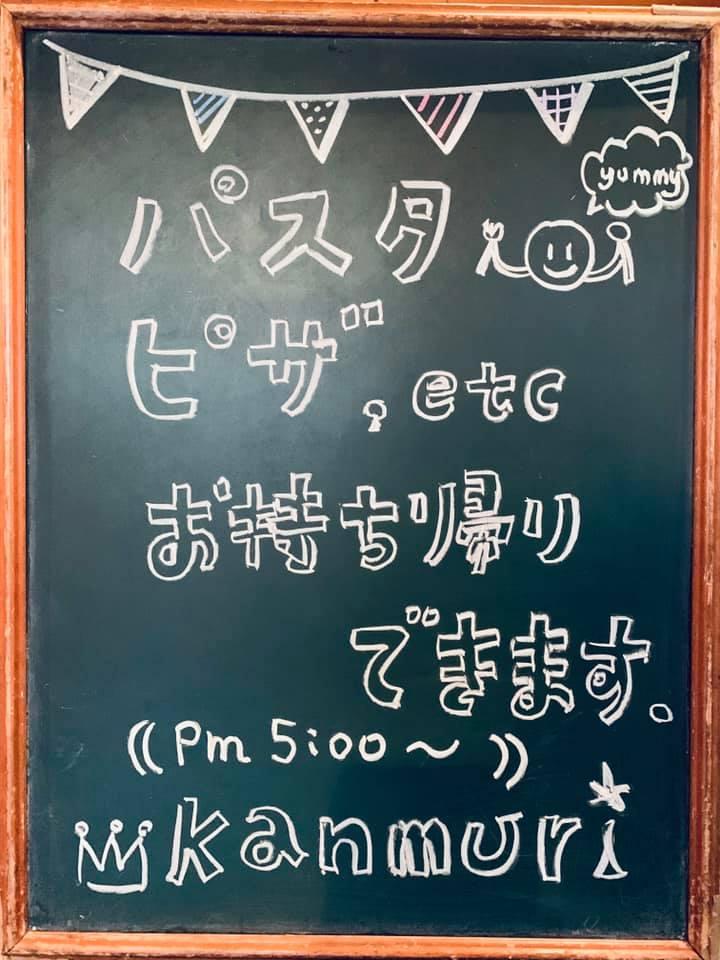 yummy
パスタ
ピザ, etc
お持ち帰り
できます。
((Pm 5:00～))
kanmuri